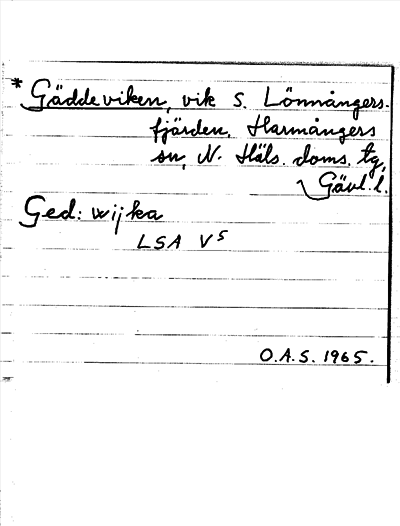 * Gäddeviken, vik S. Lönnångers-
fjärden, Harmångers
sn, N. Häls. doms. tg,
Gävl. l.
Ged: wijka
LSA V5
O.A.S. 1965.